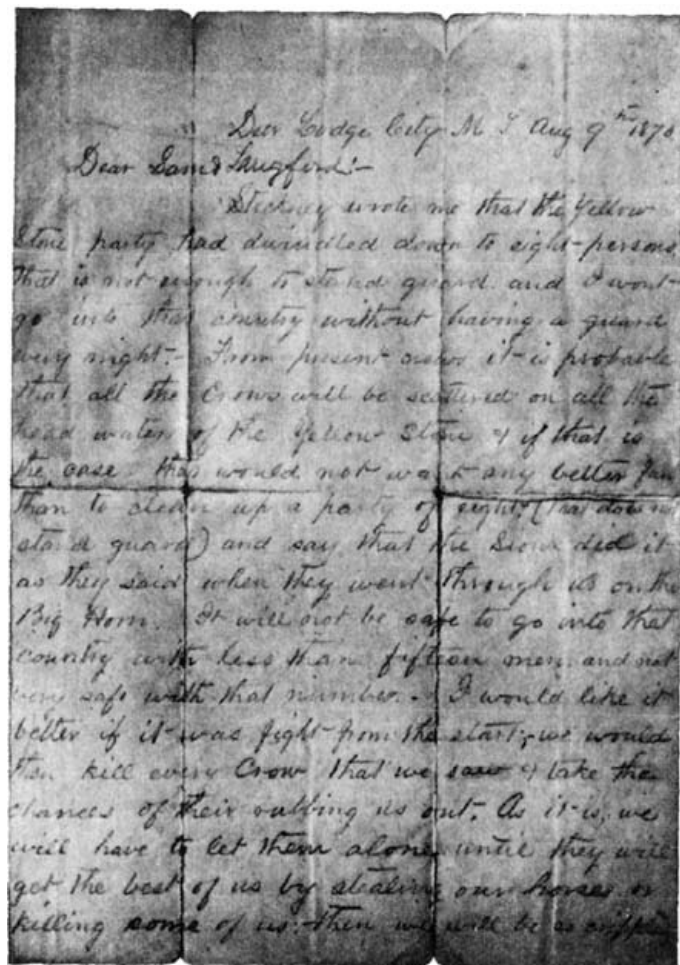 Deer Lodge City M T Aug 9th 1870
Dear Sam & Langford:-
Stickney wrote me that the Yellow
Stone party had dwindled down to eight persons
that is not enough to stand guard and I wont
go into that country without having a guard
every night.- From present news it is probable
that all the Crows will be scattered on all the
head water of the Yellow Stone & if that is
the case they would not want any better fun
than to clean up a party of eight (that does not
stand guard) and say that the Sioux did it
as they said when they went through us on the
Big Horn. It will not be safe to go into that
country with less than fifteen men and not
very safe with that number. I would like it
better if it was fight from the start; we would
then kill every Crow that we saw & take the
chances of their rubbing us out. As it is, we
will have to let them alone until they will
get the best of us by stealing our horses or
killing some of us: then we will be so